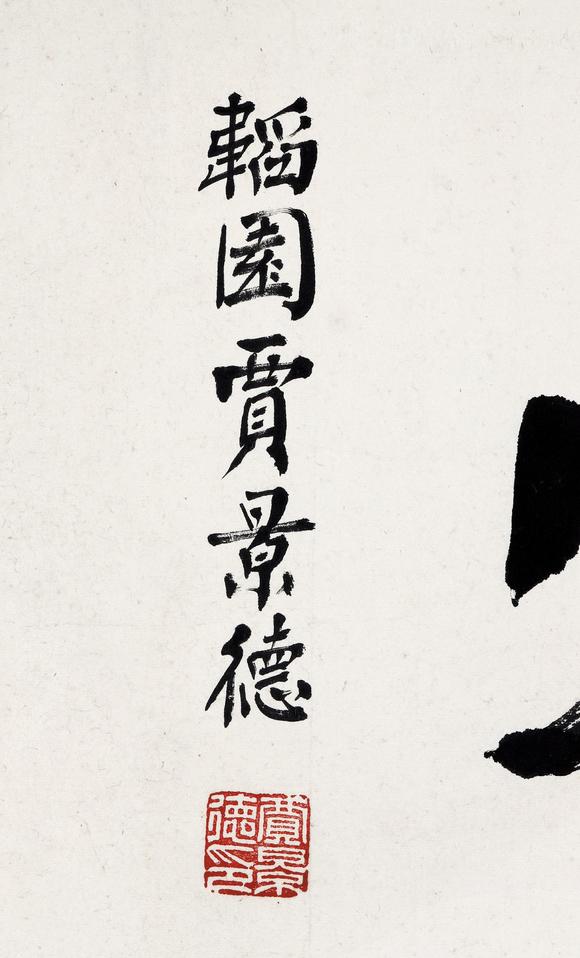 韜園賈景德
賈景德印